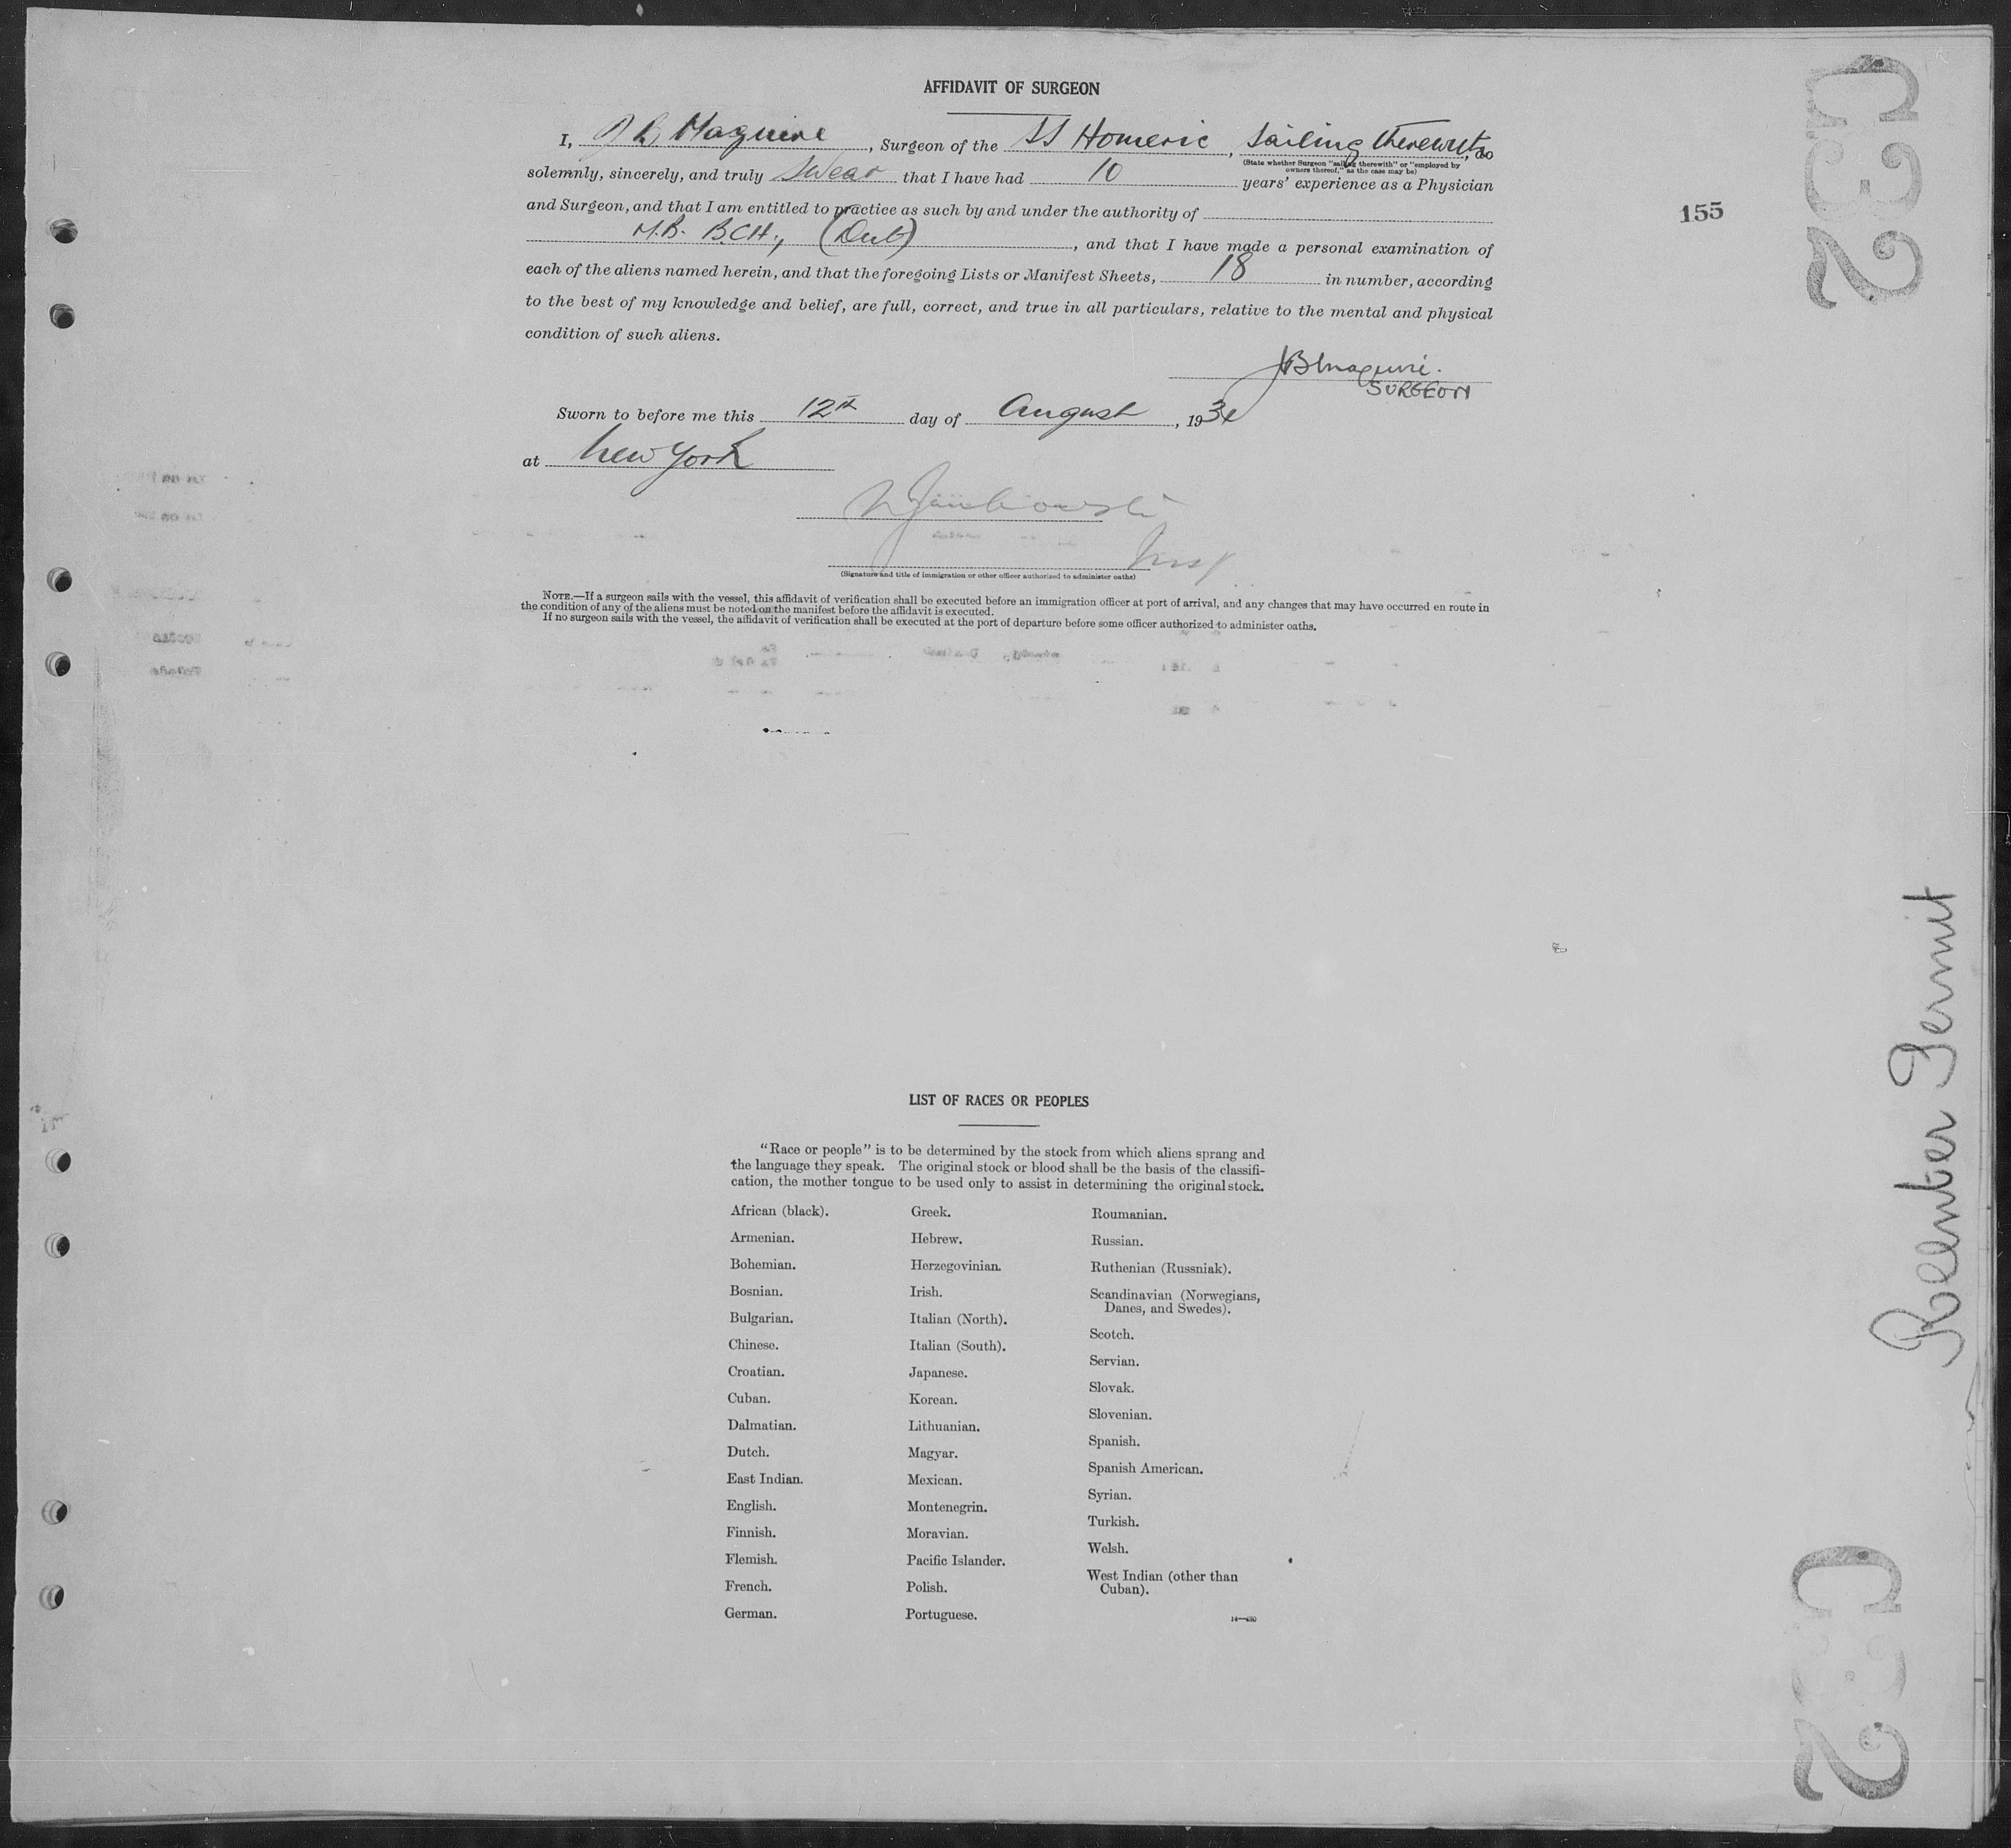 AFFIDAVIT OF SURGEON
I, J B Maguire, Surgeon of the SS Homeric, sailing therewith, do
(State whether Surgeon "sailing therewith" or "employed by
owners thereof," as the case may be)
solemnly, sincerely, and truly swear that I have had 10 years' experience as a Physician
and Surgeon, and that I am entitled to practice as such by and under the authority of
M.B. B.CH., (Dub), and that I have made a personal examination of
each of the aliens named herein, and that the foregoing Lists or Manifest Sheets, 18 in number, according
to the best of my knowledge and belief, are full, correct, and true in all particulars, relative to the mental and physical
condition of such aliens.
JB Maguire.
SURGEON
Sworn to before me this 12th day of August, 193
at New York
Insp
(Signature and title of immigration or other officer authorized to administer oaths)
NOTE.—If a surgeon sails with the vessel, this affidavit of verification shall be executed before an immigration officer at port of arrival, and any changes that may have occurred en route in
the condition of any of the aliens must be noted on the manifest before the affidavit is executed.
If no surgeon sails with the vessel, the affidavit of verification shall be executed at the port of departure before some officer authorized to administer oaths.
155
C32
Reenter Permit
C32
LIST OF RACES OR PEOPLES
"Race or people" is to be determined by the stock from which aliens sprang and
the language they speak. The original stock or blood shall be the basis of the classifi-
cation, the mother tongue to be used only to assist in determining the original stock.
African (black).
Armenian.
Bohemian.
Bosnian.
Bulgarian.
Chinese.
Croatian.
Cuban.
Dalmatian.
Dutch.
East Indian.
English.
Finnish.
Flemish.
French.
German.
Greek.
Hebrew.
Herzegovinian.
Irish.
Italian (North).
Italian (South).
Japanese.
Korean.
Lithuanian.
Magyar.
Mexican.
Montenegrin.
Moravian.
Pacific Islander.
Polish.
Portuguese.
Roumanian.
Russian.
Ruthenian (Russniak).
Scandinavian (Norwegians,
Danes, and Swedes).
Scotch.
Servian.
Slovak.
Slovenian.
Spanish.
Spanish American.
Syrian.
Turkish.
Welsh.
West Indian (other than
Cuban).